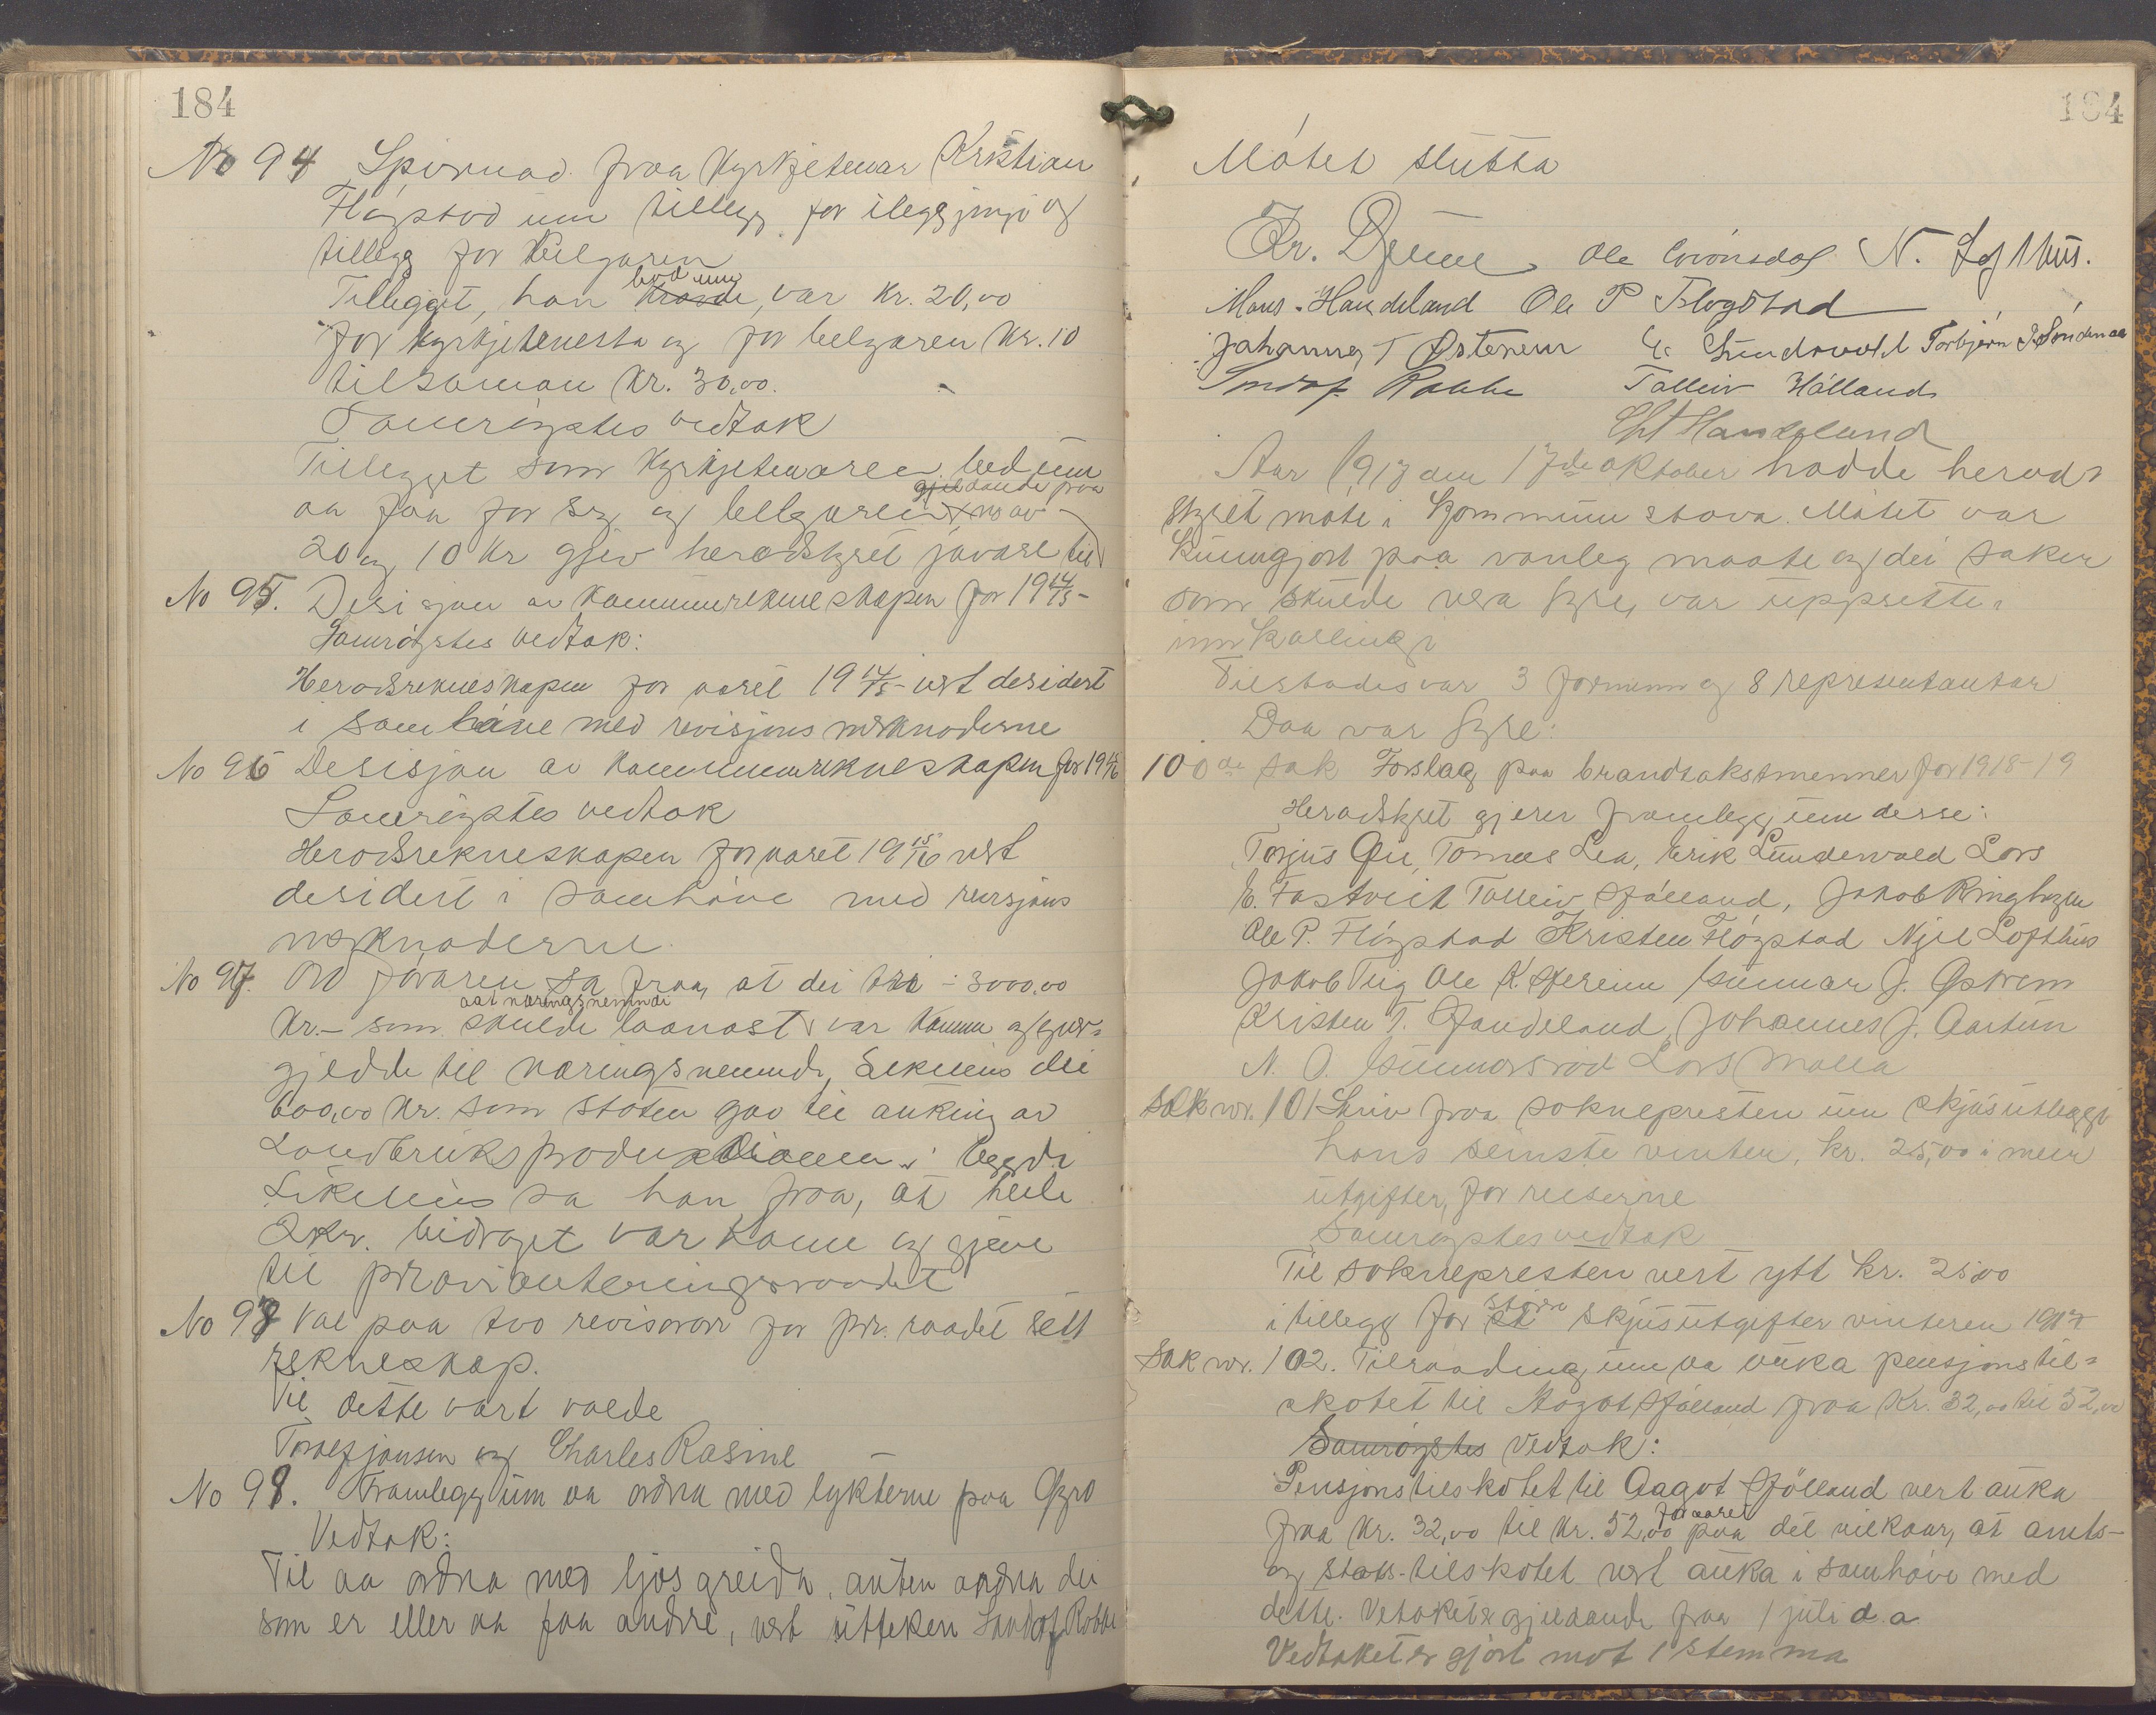 184
No 94 Spurnad fraa Kyrkjetenar Kristian
Fløgstad um tillegg for ileggjingi og
tillegg for belgaren
Tillegget, han kravde bad um, var Kr. 20,00
for kyrkjetenesta og for belgaren Kr. 10
tilsaman Kr. 30,00.
Samrøystes vedtak
Tillegget som kyrkjetenaren bed um
aa faa for seg og belgaren gjeldande fraa
20 og 10 Kr gjev heradstyret javare til
No 95. Desisjon av kommunerekneskapen for 1914/15-
Samrøystes vedtak:
Heradsrekneskapen for aaret 1914/15- vert desidert
i samhøve med revisjons merknaderne
No 96 Desisjon av kommunerekneskapen for 1915/16
Samrøystes vedtak
Heradsrekneskapen for aaret 1915/16 vert
desidert i samhøve med revisjons
merknaderne.
No 97. Ordføraren sa fraa, at dei tri - 3000,00
Kr.- som skulde laanast aat næringsnemndi var komne og yver-
gjedde til næringsnemnda, Likeeins dei
600,00 Kr. som staten gav til auking av
Landbruksproduktionen i bygdi
Likeeins sa han fraa, at heile
2kr. bidraget var kome og gjeve
til provianteringsraadet
No 98 Val paa tvo revisorar for pr. raadet sitt
rekneskap.
Til dette vart valde
Tomas Jansen og Charles Rasine
No 98. Framlegg um aa ordna med lykterne paa Øyro
Vedtak:
Til aa ordna med ljosgreida, anten ordna dei
som er eller aa faa andre, vert utteken Sandof Rabbe
184
Møtet slutta
Kr. Djuve Ole Grønsdal N. Lofthus.
Mons. Handeland Ole P Fløgstad
Johannes T Østerem G. Lundevold Torbjørn S. Søndenaa
Sandof. Rabbe Talleiv Hølland
Chr Handeland
Aar 1917 den 17de oktober hadde herads
styret møte i Kommunestova. Møtet var
kunngjort paa vanleg maate og dei saker
som skulde vera fyre, var uppsette i
innkallingi
Tilstades var 3 formenn og 8 representantar
Daa var fyre:
100de sak Forslag paa brandtakstmenner for 1918-19
Heradstyret gjerer framlegg um desse:
Torjus Qu, Tomas Lea, Erik Lundevold Lars
E. Fastveit Talleiv Hølland, Jakob Ringhagen
Ole P. Fløgstad Kristen Fløgstad Njel Lofthus
Jakob Teig Ole K. Hereim Gunnar J. Østrem
Kristen T. Handeland, Johannes J. Aartun
N. O. Gunnarsrød Lars Malla
Sak nr. 101 Skriv fraa soknepresten um skjusutleggi
hans seinste vinter, kr. 25,00 i meir
utgifter, for reiserne
Samrøystes vedtak
Til soknepresten vert ytt kr. 25,00
i tillegg for større skjusutgifter vinteren 1917
Sak nr. 102. Tilraading um aa auka pensjonstil-
skotet til Aagot Hølland fraa Kr. 32,00 til 52,00
Samrøystes Vedtak:
Pensjonstilskotet til Aagot Hølland vert auka
fraa Kr. 32,00 til Kr. 52,00 for aaret paa det vilkaar, at amts-
og stats-tilskotet vert auka i samhøve med
dette. Vetaket er gjeldande fraa 1 juli d.a
Vedtaket er gjort mot 1 stemma